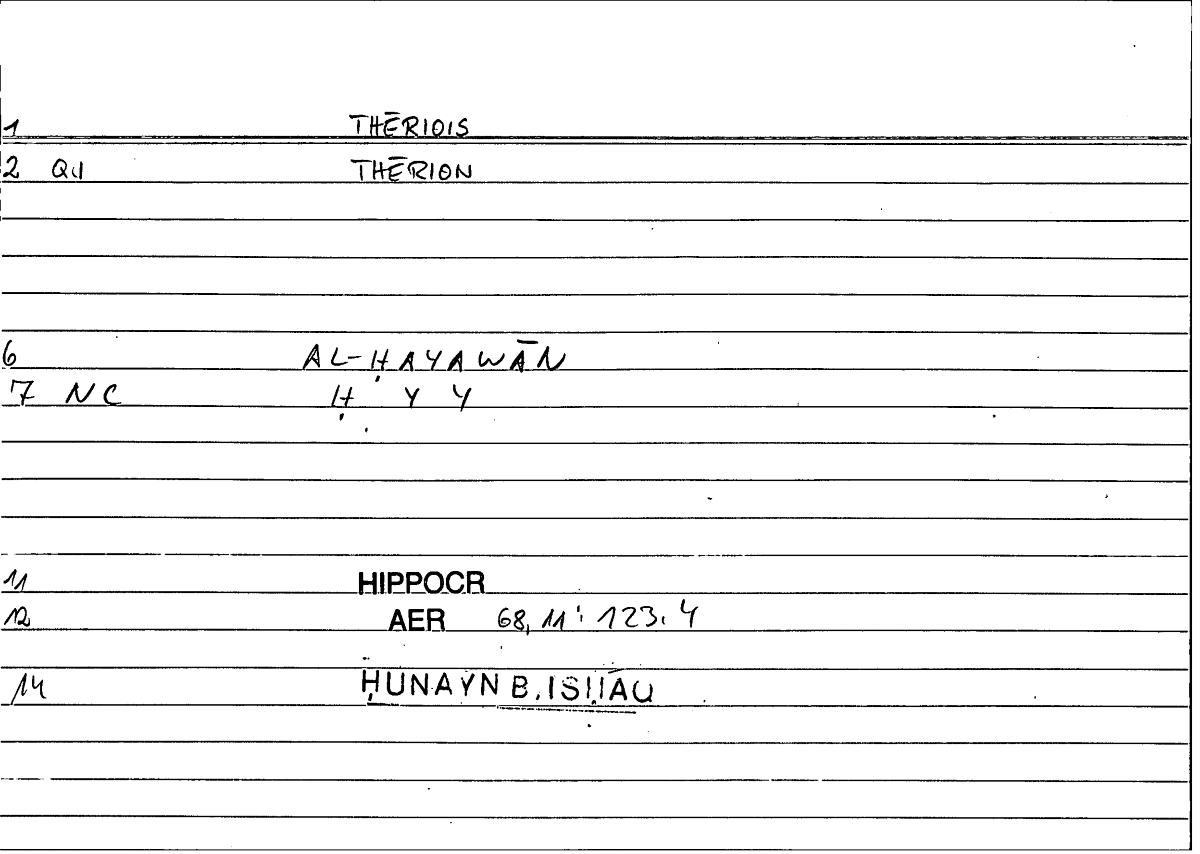 1 THĒRIOIS
2 Qıı THĒRION
6 AL-ḤAYAWĀN
7 NC Ḥ Y Y
11 HIPPOCR
12 AER 68,11 : 123.4
14 ḤUNAYN B. ISḤĀQ